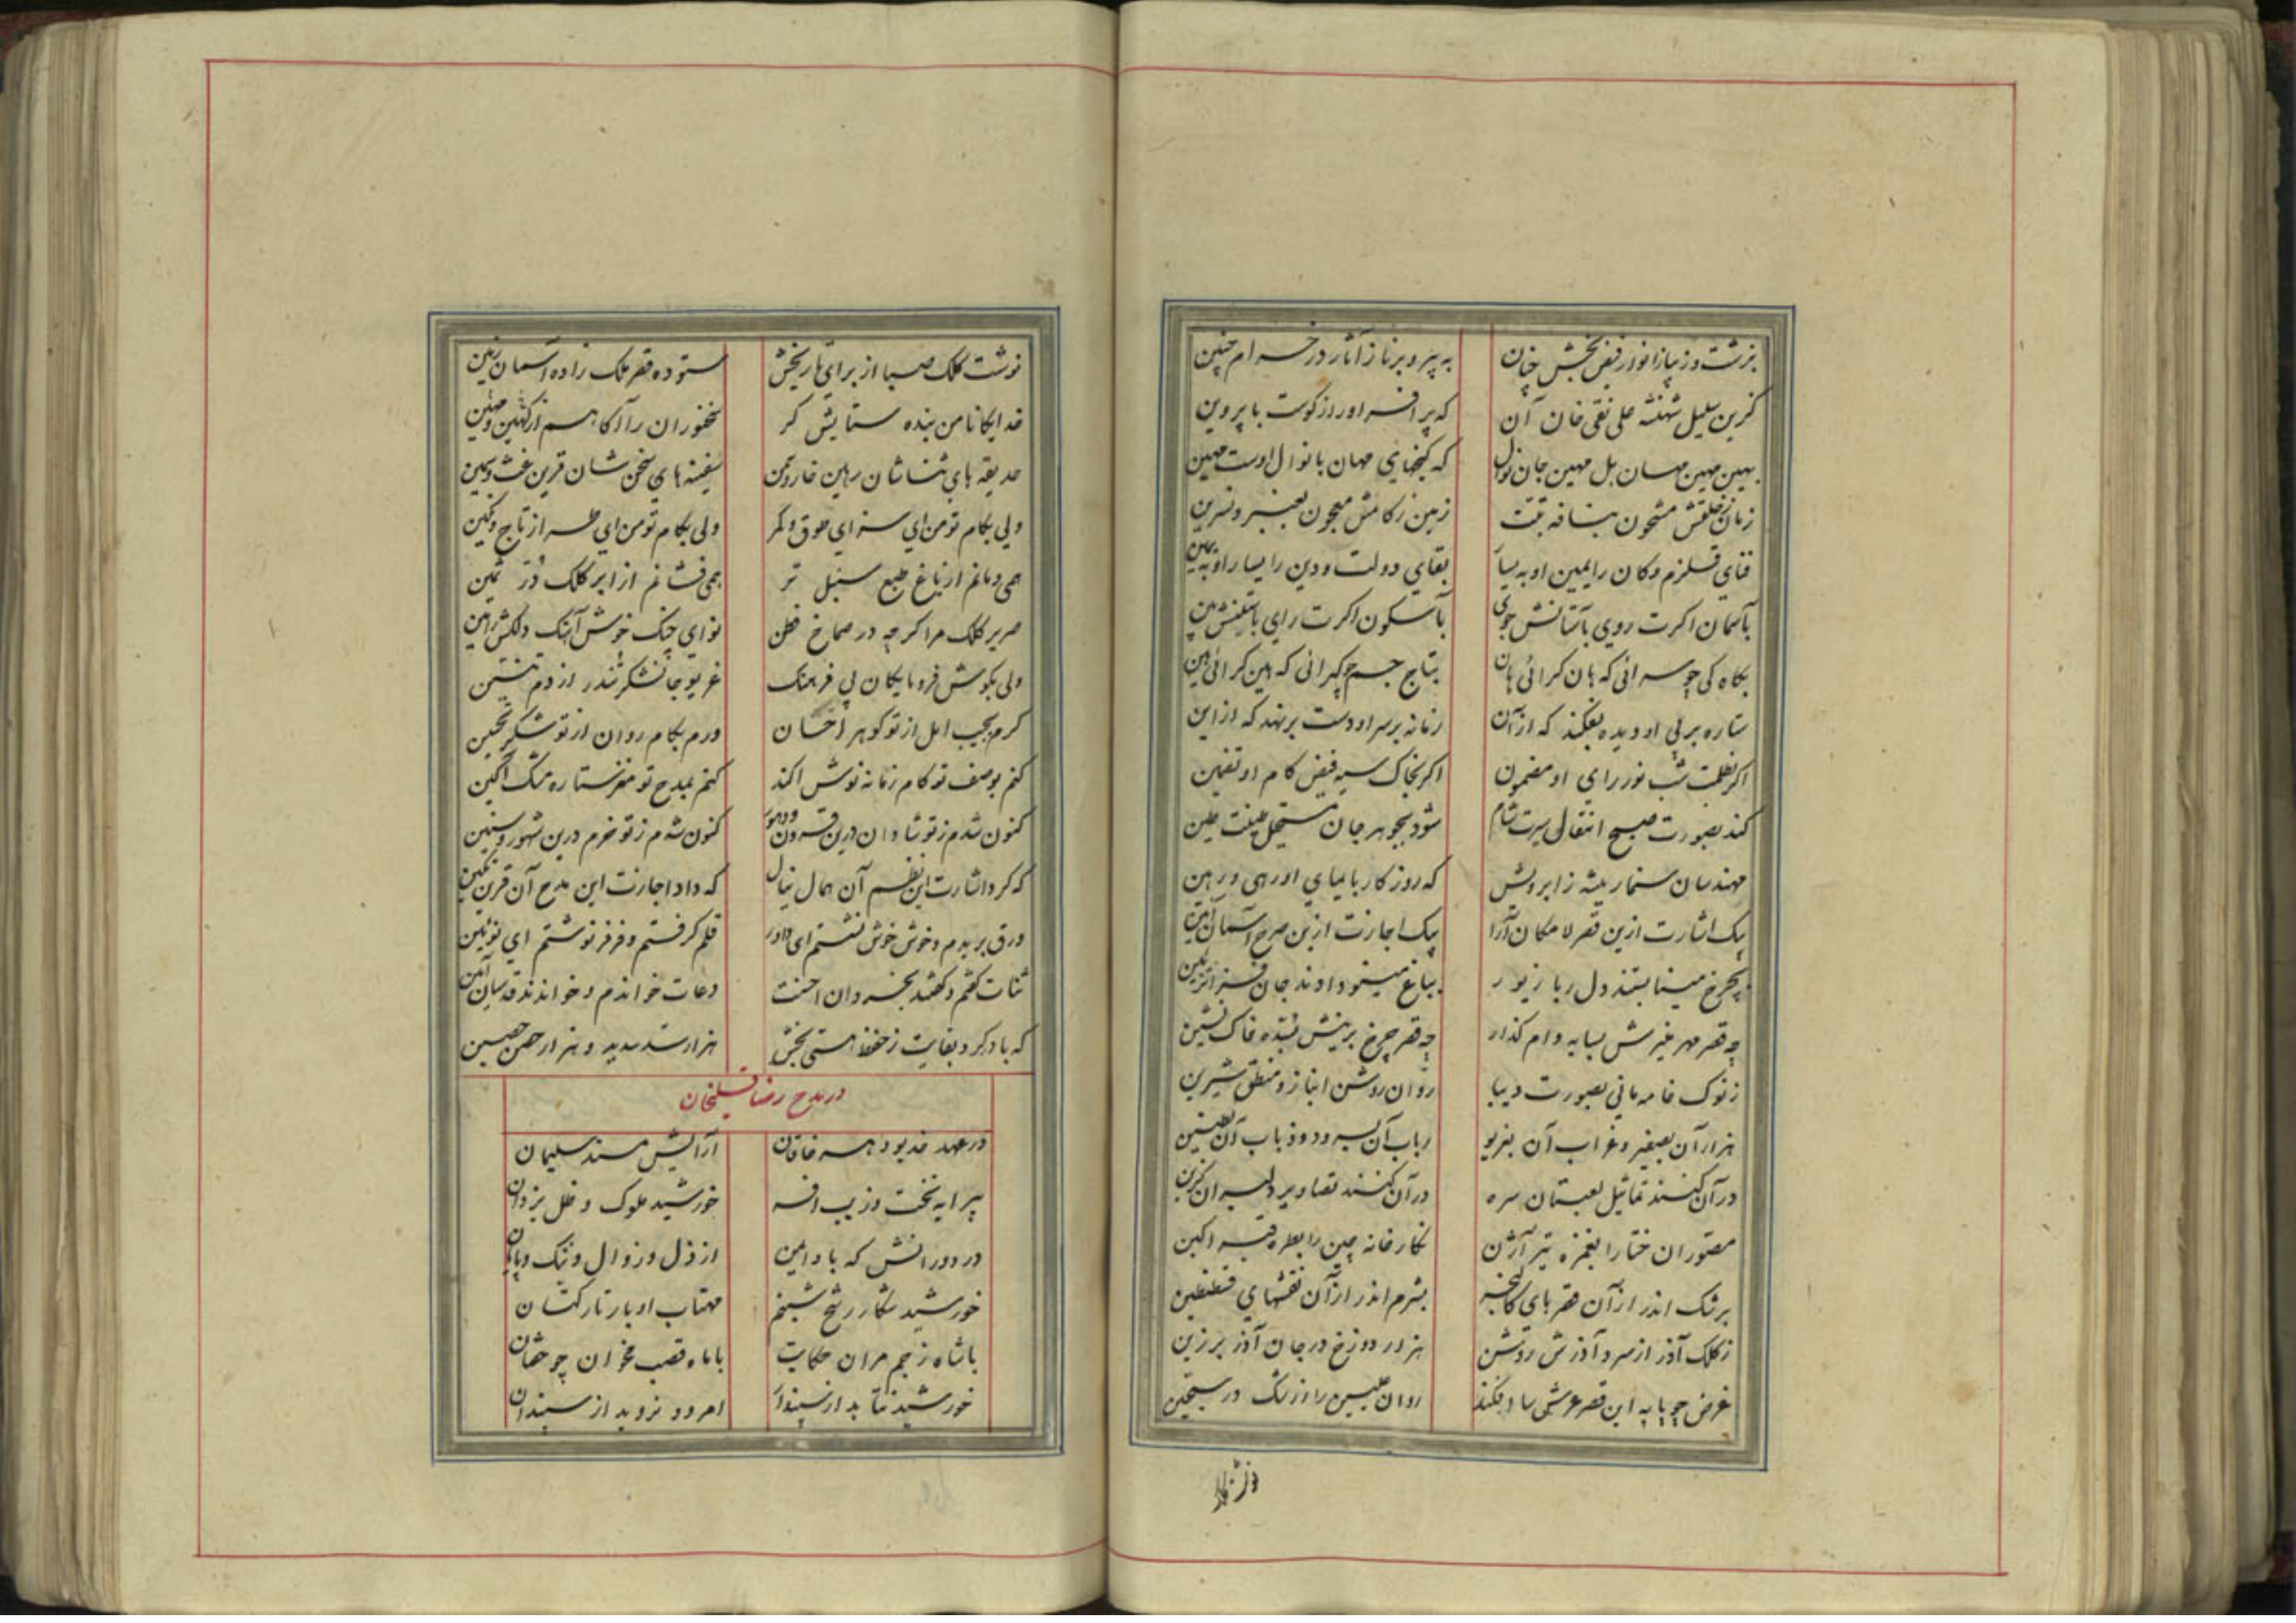 بزشت و زیبا ز انوار فیض بخش چنان به پیر و برنا ز آثار در خسرام چنین
گزین سلیل شهنشه علی نقی خان آن که بر افسر او راز گوست با پروین
بهین مهین مهسان بل مهین جان نوال که گنجهای مهان با نوال اوست مهین
زمان ز خلقش مشحون بنافه تبت زمین ز کامش معجون بعنبر و نسرین
فنای قلزم و کان را یمین او به یسار بقای دولت و دین را یسار او به یمین
بآسمان اکرت روی بآستانش جوی بآسکون اکرت رای باستینش بین
بگاه کی چو سرانی که هان کرائی هان بتاج جم چو گرانی که هین کرائی هین
ستاره بر پی او دیده بفکند که از آن زمانه بر سر او دست بر نهد که از این
اکر بظلمت شب نور رای او مضمون اکر بخاک سیه فیض کام او تضمین
کند بصورت صبح انتقال سیرت شام شود بجوهر جان مستحیل طینت طین
مهندسان سنمار پیشه ز ابرویش که روزکار بایمای او رهی و رهین
بیک اشارت ازین قصر لامکان آرا بیک اجازت ازین صرح آسمان آئین
بچرخ مینا بستند دلربا زیور بباغ مینو دادند جان فزا تزیین
چه قصر مهر منیرش بسایه وام گذار چه قصر چرخ برینش بنده خاک نشین
ز نوک خامه مانی بصورت دیبا روان روشن انباز و منطق شیرین
هزار آن بصفیر و غراب آن بغریو رباب آن بسرود و ذباب آن بطنین
در آن کنند تماثیل لعبتان سره در آن کنند تصاویر دلبران گزین
مصوران ختا را بغمزه تیر آژن نگارخانه چین را بطره قیر اکین
برشک اندر از آن قصرهای کالنجر بشرم اندر از آن نقشهای قسطنطین
ز کلک آذر از سرد آذرش روشن هزار دوزخ در جان آذر برزین
غرض چو پایه این قصر عرش سا افکند روان بلیس را از رشک در سجین
نوشت کلک صبا از برای تاریخش ستوده قصر ملک زاده آسمان زمین
خدایکانا من بنده ستایش کر سخنوران را آکاهم از کهین و مهین
حدیقه های ثناشان رهین خار و دمن سفینه های سخن شان قرین غث و سمین
ولی بکام تو من ای سزای طوق و کمر ولی بکام تو من ای طراز تاج و نگین
همی دمانم از باغ طبع سنبل تر همی فشانم از ابر کلک دُرّ ثمین
صریر کلک مرا کرچه در صماخ فطن نوای چنک خوش آهنک دلکش رامین
ولی بکوش فرومایکان بی فرهنک غریو جانشکر تندر از دم تنین
کرم بجیب امل از تو کوهر احسان ورم بکام روان از تو شکر تحسین
کنم بوصف تو کام زمانه نوش اکند کنم بمدح تو مغز ستاره مشک اکین
کنون شدم ز تو شادان درین قرون و دهور کنون شدم ز تو خرم درین شهور و سنین
که کرد اشارت این نظم آن همال نیال که داد اجازت این مدح آن قرین تکین
ورق بریدم و خوش خوش نشستم ای داور قلم کرفتم و فرفر نوشتم ای نوئین
ثنات کفتم و کفتند بخسروان احسنت دعات خواندم و خواندند قدسیان آمین
که باد کرد بقایت ز حفظ هستی بخش هزار سد سدید و هزار حصن حصین
در مدح رضا قلیخان
در عهد خدیو دهر خاقان آرایش مسند سلیمان
پیرایه تخت و زیب افسر خورشید ملوک و ظل یزدان
در دورانش که باد ایمن از ذل و زوال و ننک و پایان
خورشید شکار رشح شبنم مهتاب اویار تار کتان
با شاه ز جم مران حکایت با ماه قصب مخوان چو خفتان
خورشید نتابد از سپندار امرود نروید از سپندان